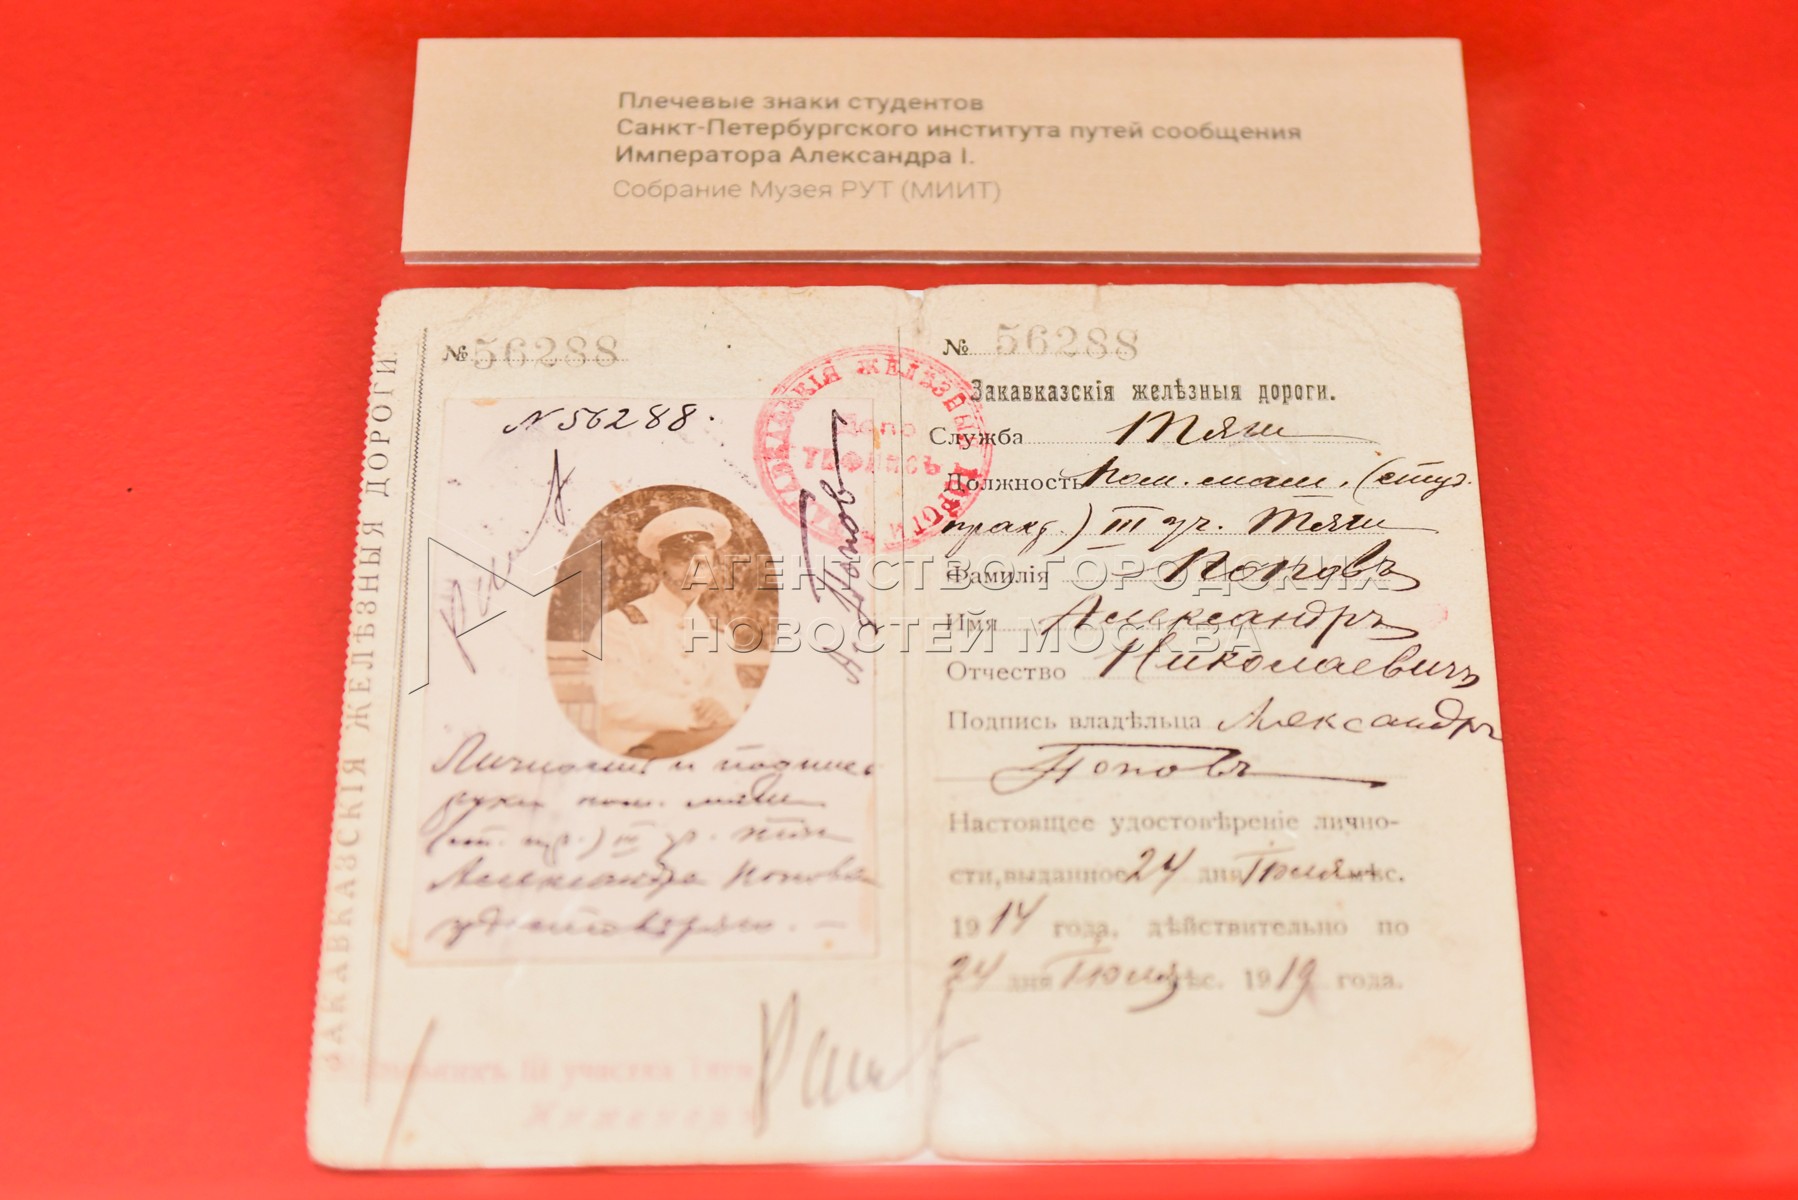 Плечевые знаки студентов
Санкт-Петербургского института путей сообщения
Императора Александра I.
Собрание Музея РУТ (МИИТ)
ЗАКАВКАЗСКІЯ ЖЕЛѢЗНЫЯ ДОРОГИ.
№ 56288
N 56288.
ЗАКАВКАЗСКІЯ ЖЕЛѢЗНЫЯ ДОРОГИ
Депо
ТИФЛИСЪ
Ал. Поповъ
Личность и подпись
руки пом. маш.
(ст. пр.) III уч. тяги
Александра Попова
удостоверяю. —
III участка Тяги
Инженеръ
№ 56288
Закавказскія желѣзныя дороги.
Служба Тяги
Должность Пом. маш. (студ.
практ.) III уч. Тяги
Фамилія Поповъ
Имя Александръ
Отчество Николаевичъ
Подпись владѣльца Александръ
Поповъ
Настоящее удостовѣреніе лично-
сти, выданное 24 дня Іюля мѣс.
1914 года, дѣйствительно по
24 дня Іюля мѣс. 1919 года.
АГЕНТСТВО ГОРОДСКИХ
НОВОСТЕЙ МОСКВА